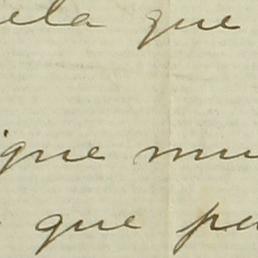 ela que
igue mu
que pu